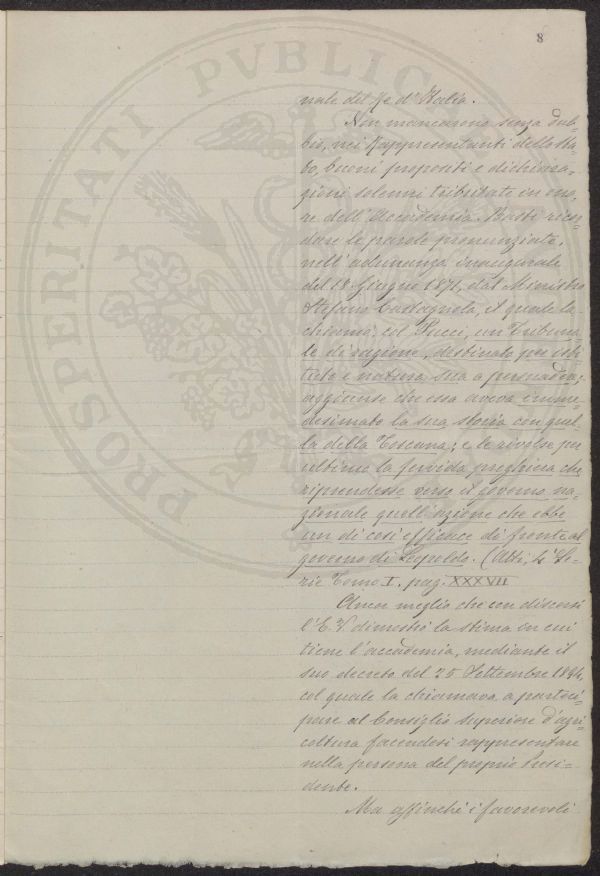 8
nale del Re d'Italia.
Non mancarono senza dub-
bio, nei Rappresentanti dello Sta-
to, buoni propositi e dichiara-
zioni solenni tributate in ono-
re dell'Accademia. Basti ricor-
dare le parole pronunziate,
nell'adunanza inaugurale
del 18 Giugno 1871, dal Ministro
Stefano Castagnola, il quale la
chiamò, col Pucci, un Tribuna
le di ragione, destinato per isti
tuto e natura sua a persuadere;
aggiunse che essa aveva imme-
desimato la sua storia con quel-
la della Toscana; e le rivolse per
ultimo la fervida preghiera che
riprendesse verso il governo na-
zionale quell'azione che ebbe
un dì così efficace di fronte al
governo di Leopoldo. (Atti, 4ª Se-
rie Tomo I, pag. XXXVII
Anco meglio che con discorsi
l'E. V. dimostrò la stima in cui
tiene l'accademia, mediante il
suo decreto del 25 Settembre
col quale la chiamava a parteci-
pare al Consiglio superiore d'agri
coltura facendosi rappresentare
nella persona del proprio Presi-
dente.
Ma affinchè i favorevoli
PROSPERITATI PVBLICAE